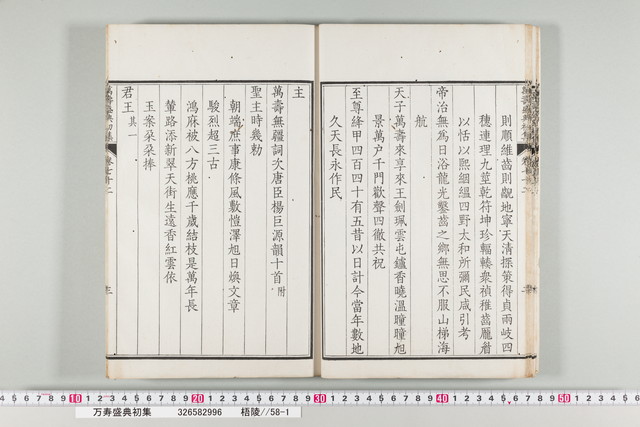 則順維齒則覯地寧天清探策得貞兩岐四
穗連理九莖乾符坤珍輻輳衆禎稚齒龐眉
以恬以熙絪縕四野太和所彌民咸引考
帝治無為日浴龍光鑿齒之鄉無思不服山梯海
航
天子萬壽來享來王劍珮雲屯鑪香曉溫曈曈旭
景萬户千門歡聲四徹共祝
至尊絳甲四百四十有五昔以日計今當年數地
久天長永作民
主
萬壽無疆詞次唐臣楊巨源韻十首附
聖主時幾勅
朝端庶事康條風敷愷澤旭日煥文章
駿烈超三古
鴻麻被八方桃應千歲結枝是萬年長
輦路添新翠天街生遠香紅雲依
玉案朵朵捧
君王其一
萬壽盛典初集
10 20 30 40 50
万寿盛典初集 326582996 梧陵//58-1